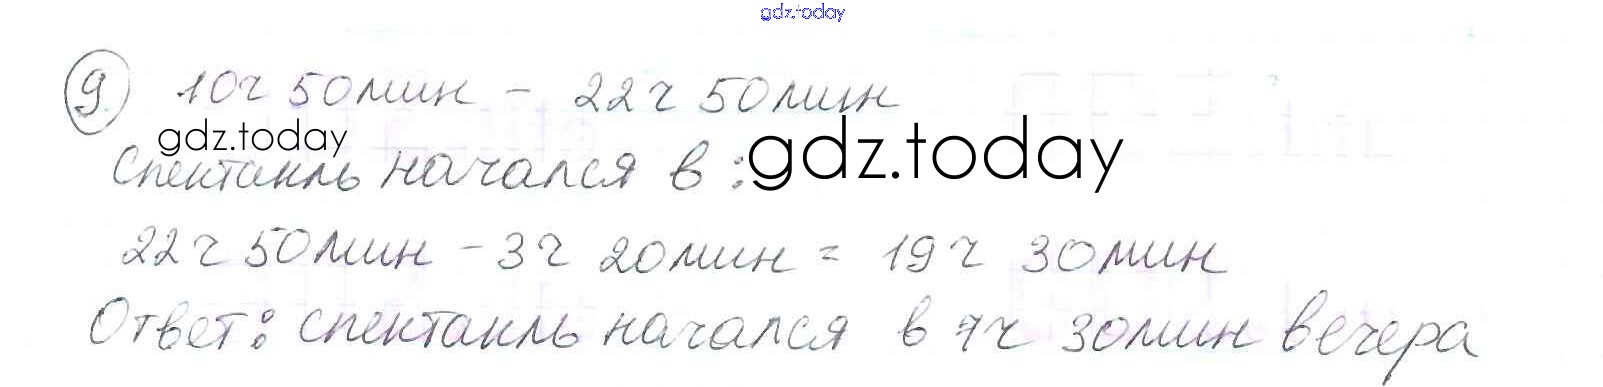 gdz.today
9 10ч 50мин - 22ч 50мин
gdz.today
Спектакль начался в :
gdz.today
22ч 50мин - 3ч 20мин = 19ч 30мин
Ответ: спектакль начался в 7ч 30мин вечера